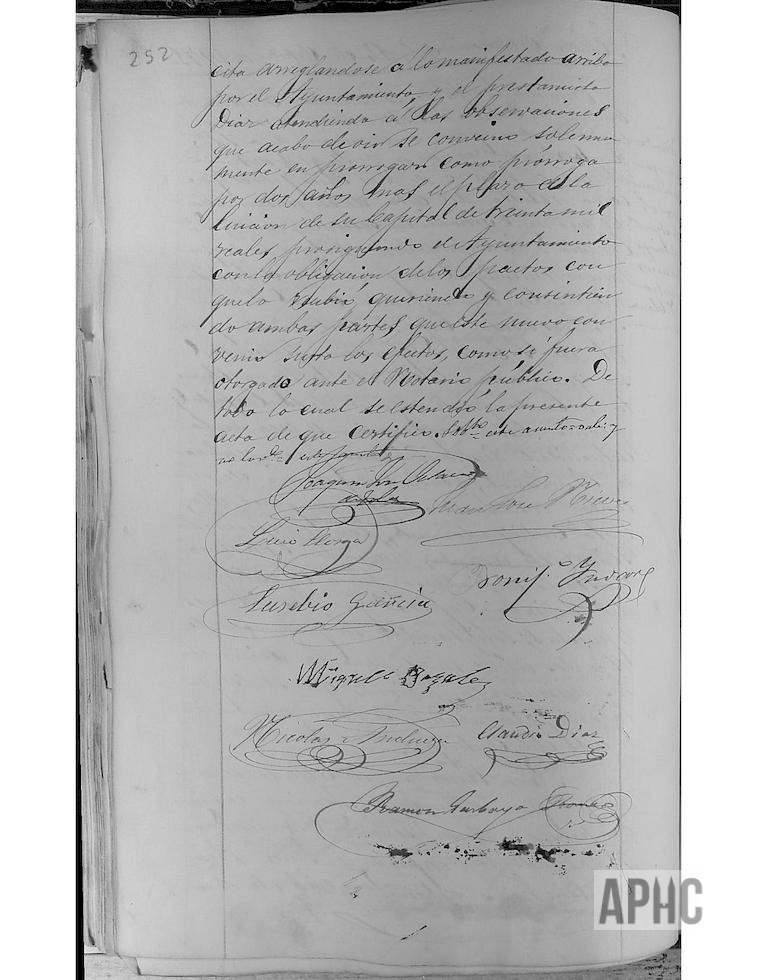 252
cita arreglandose á lo manifestado arriba
por el Ayuntamiento y el prestamista
Diaz atendienda á las observaciones
que acabo de oir se convino solemne
mente en prorrogar como prorroga
por dos años mas el plazo de la
lucion de su Capital de treinta mil
reales prosiguiendo el Ayuntamiento
con la obligacion de los pactos con
que lo recibió, queriendo y consintien
do ambas partes que este nuevo con
venio surta los efectos, como si fuera
otorgado ante el Notario público. De
todo lo cual se estendió la presente
acta de que certifico.
Joaquin
Juan José
Lucio
Bonif.o
Eusebio Garicia
Miguel Bazale
Nicolas
Claudio Diaz
Ramon Garbayo
APHC